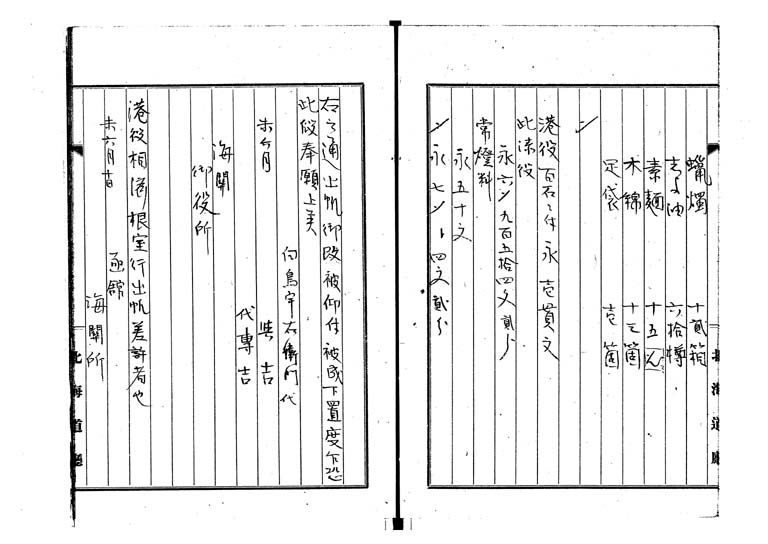 蠟燭 十貳箱
六拾樽
素麺 十五
木綿 十三箇
足袋 壱箇
〆
港役百石ニ付永壱貫文
此沫役
永六〆九百五拾四文貳分
常燈料
永五十文
〆永七〆〻四文貳分
右之通出帆御改被仰付被成下置度乍恐
此段奉願上候
向鳥宇右衛門代
共吉
代専吉
未六月
海關
御役所
港役相済根室行出帆差許者也
未六月
函館
海關所
北海道廳
北海道廳